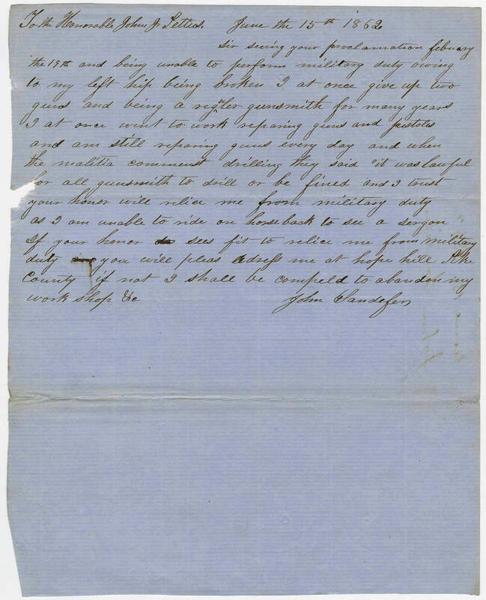 To the Honorable John J. Pettus. June the 15th 1862
Sir seeing your proclamation febuary
the 18th and being unable to perform military duty owing
to my left hip being broken I at once give up two
guns and being a regular gunsmith for many years
I at once went to work reparing guns and pistols
and am still reparing guns every day and when
the malitia commenst drilling they said it was lawful
for all gunsmith to drill or be fined and I trust
your honor will relice me from military duty
as I am unable to ride on horseback to see a surgon
If your honor sees fit to relice me from military
duty you will pleas adress me at hope hill
County if not I shall be compeld to abandon my
work shop &c John Sandefer